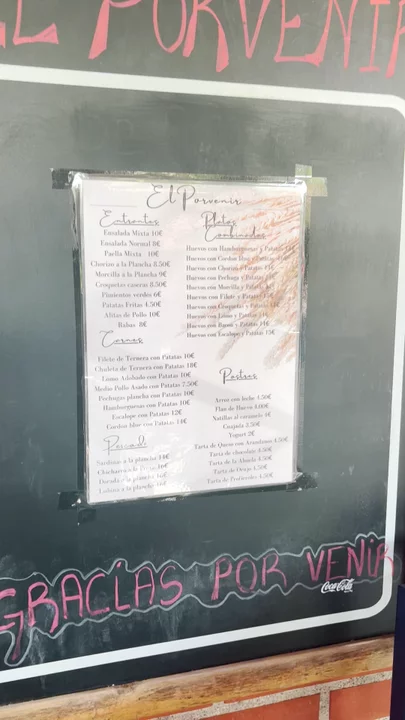 EL PORVENIR
El Porvenir
Entrantes
Ensalada Mixta 10€
Ensalada Normal 8€
Paella Mixta 10€
Chorizo a la Plancha 8.50€
Morcilla a la Plancha 9€
Croquetas caseras 8.50€
Pimientos verdes 6€
Patatas Fritas 4.50€
Alitas de Pollo 10€
Rabas 8€
Carnes
Filete de Ternera con Patatas 10€
Chuleta de Ternera con Patatas 18€
Lomo Adobado con Patatas 10€
Medio Pollo Asado con Patatas 7.50€
Pechugas plancha con Patatas 10€
Hamburguesas con Patatas 10€
Escalope con Patatas 12€
Cordon blue con Patatas 14€
Pescado
Sardinas a la plancha 14€
Chicharro a la
Dorada a la plancha
Lubina a la plancha
Platos
Combinados
Huevos con Hamburguesas y Patatas
Huevos con Cordon blue y Patatas
Huevos con Chorizo y Patatas
Huevos con Pechuga y Patatas
Huevos con Morcilla y Patatas
Huevos con Filete y Patatas
Huevos con Croquetas y Patatas
Huevos con Lomo y Patatas
Huevos con Bacon y Patatas 14€
Huevos con Escalope y Patatas 15€
Postres
Arroz con leche 4.50€
Flan de Huevo
Natillas al caramelo 4€
Cuajada 3.50€
Yogurt 2€
Tarta de Queso con Arandanos 4.50€
Tarta de chocolate 4.50€
Tarta de la Abuela 4.50€
Tarta de Orujo 4.50€
Tarta de Profiteroles 4.50€
GRACIAS POR VENIR
Coca-Cola